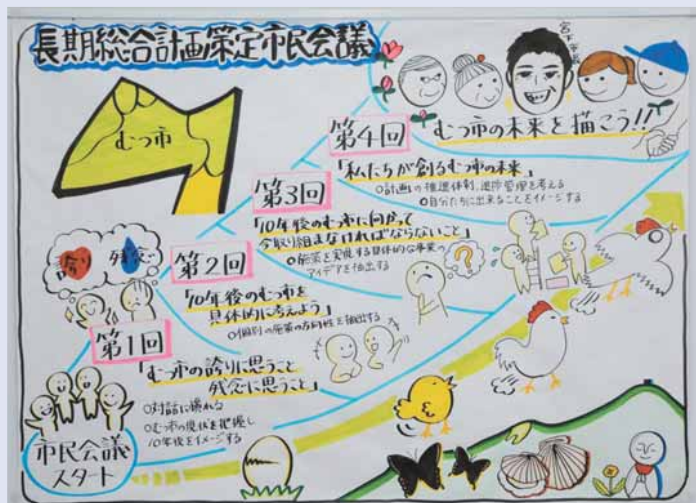 長期総合計画策定市民会議
宮下市長
むつ市の未来を描こう!!
むつ市
第4回
「私たちが創るむつ市の未来」
○計画の推進体制、進捗管理を考える
○自分たちに出来ることをイメージする
第3回
「10年後のむつ市に向かって
今取り組まなければならないこと」
○施策を実現する具体的な事業の
アイデアを抽出する
?
誇り
残念…
第2回
「10年後のむつ市を
具体的に考えよう」
○個別の施策の方向性を抽出する
第1回
「むつ市の誇りに思うこと
残念に思うこと」
○対話に慣れる
○むつ市の現状を把握し
10年後をイメージする
市民会議
スタート